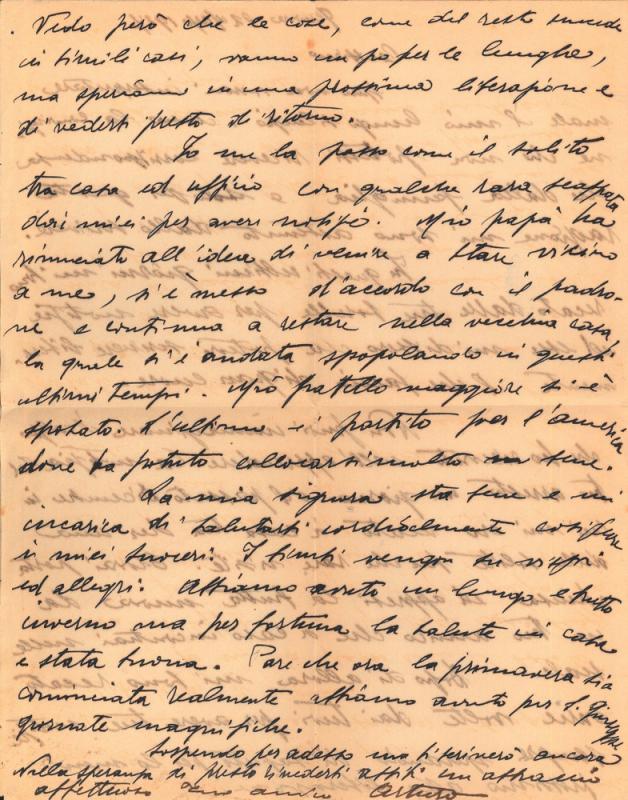 . Vedo però che le cose, come del resto succede
in simili casi, vanno un po per le lunghe,
ma speriamo in una prossima liberazione e
di vederti presto di ritorno.
Io me la passo come il solito
tra casa ed ufficio con qualche rara scappata
dai miei per avere notizie. Mio papà ha
rinunciato all'idea di venire a stare vicino
a me, si è messo d'accordo con il padro-
ne e continua a restare nella vecchia casa,
la quale si è andata spopolando in questi
ultimi tempi. Mio fratello maggiore si è
sposato. L'ultimo è partito per l'america
dove ha potuto collocarsi molto bene.
La mia signora sta bene e mi
incarica di salutarti cordialmente così pure
i miei suoceri. I bimbi vengon su vispi
ed allegri. Abbiamo avuto un lungo e brutto
inverno ma per fortuna la salute in casa
è stata buona. Pare che ora la primavera sia
cominciata realmente abbiamo avuto per S. Giuseppe
giornate magnifiche.
Sospendo per adesso ma ti scriverò ancora
Nella speranza di presto rivederti abbiti un abbraccio
affettuoso tuo amico Arturo